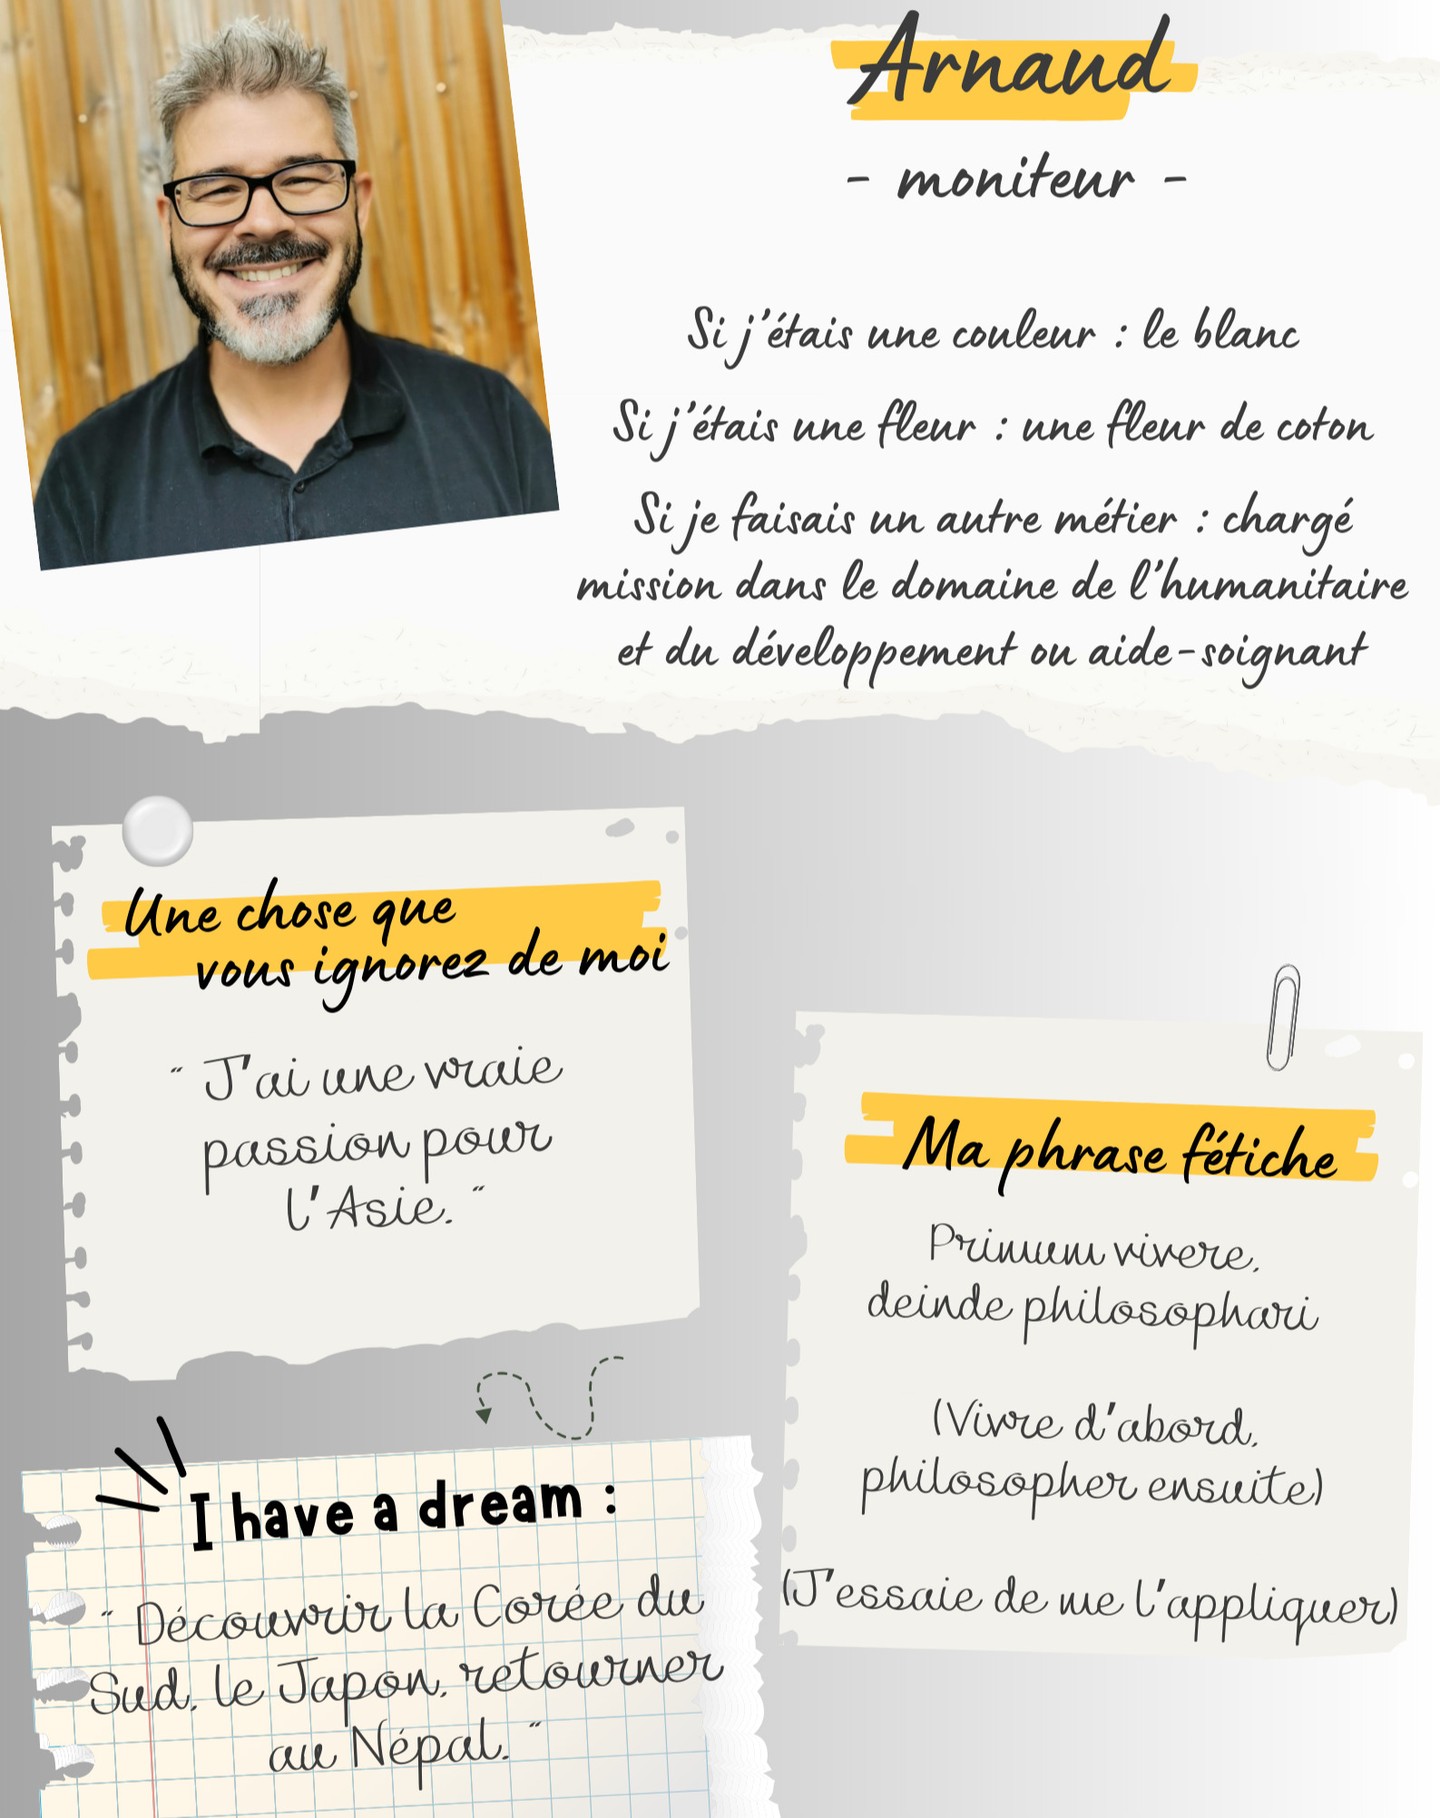 Arnaud
- moniteur -
Si j'étais une couleur : le blanc
Si j'étais une fleur : une fleur de coton
Si je faisais un autre métier : chargé
mission dans le domaine de l'humanitaire
et du développement ou aide-soignant
Une chose que
vous ignorez de moi
" J'ai une vraie
passion pour
l'Asie. "
Ma phrase fétiche
Primum vivere,
deinde philosophari
(Vivre d'abord,
philosopher ensuite)
(J'essaie de me l'appliquer)
I have a dream :
" Découvrir la Corée du
Sud, le Japon, retourner
au Népal. "